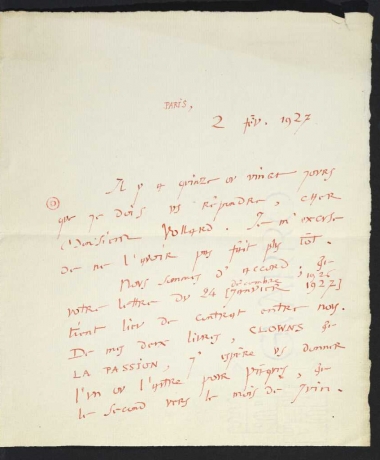 PARIS,
2 fév. 1927
Il y a quinze ou vingt jours
que je dois vs répondre, cher
Monsieur Vollard. Je m'excuse
de ne l'avoir pas fait plus tôt.
Nous sommes d'accord, que
décembre 1926
votre lettre du 24 [janvier 1927]
tient lieu de contrat entre nous.
De mes deux livres, CLOWNS &
LA PASSION, j'espère vs donner
l'un ou l'autre pour Pâques, &
le second vers le mois de Juin.